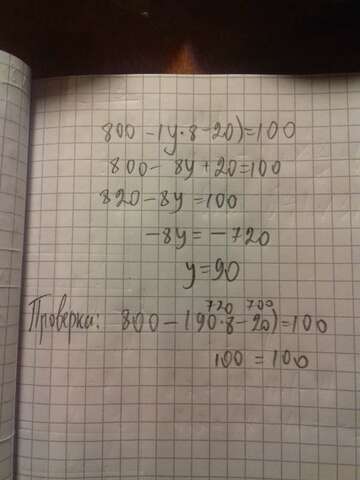 800 - (y·8-20)=100
800- 8y+20=100
820-8y=100
-8y=-720
y=90
720 700
Проверка: 800-(90·8-20)=100
100=100